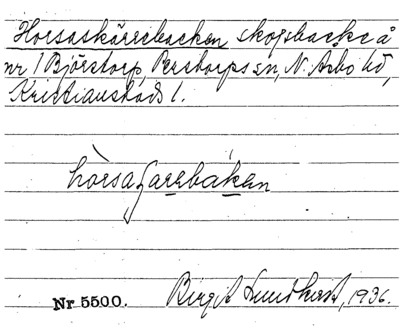 Horsaskärrebacken skogsbacke å
nr 1 Björstorp, Perstorps sn, N. Åsbo hd,
Kristianstads l.
Nr 5500. Birgit Lundkvist, 1936.